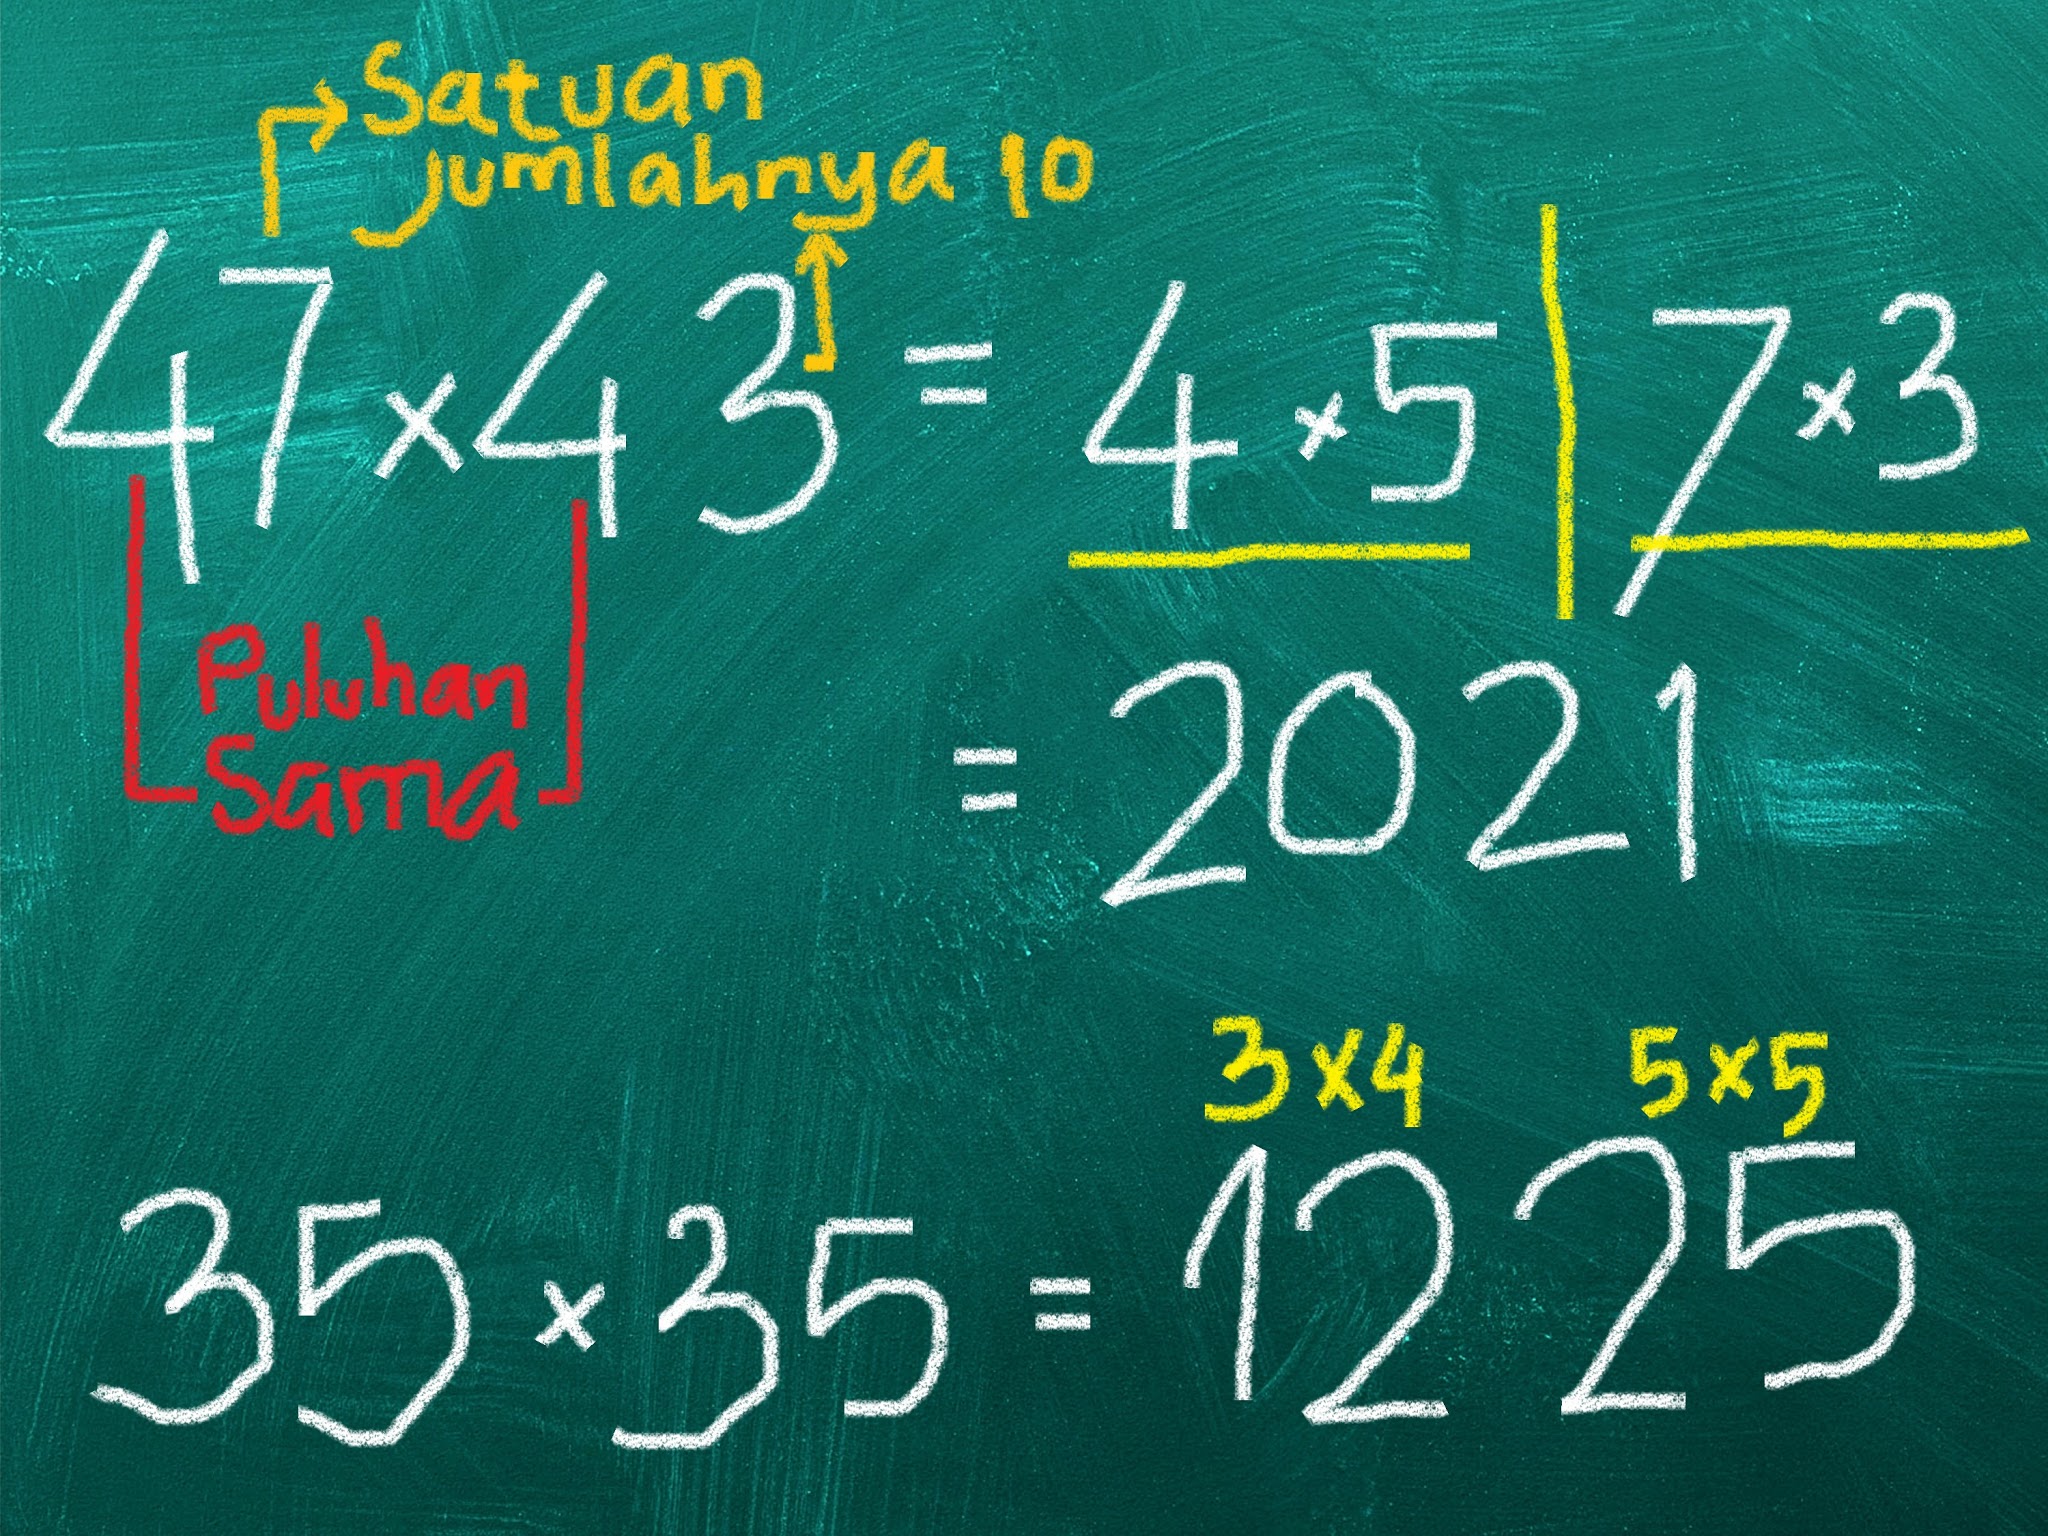 Satuan
jumlahnya 10
47 × 43 = 4 × 5 | 7 × 3
Puluhan
Sama
= 2021
3 × 4 5 × 5
35 × 35 = 1225